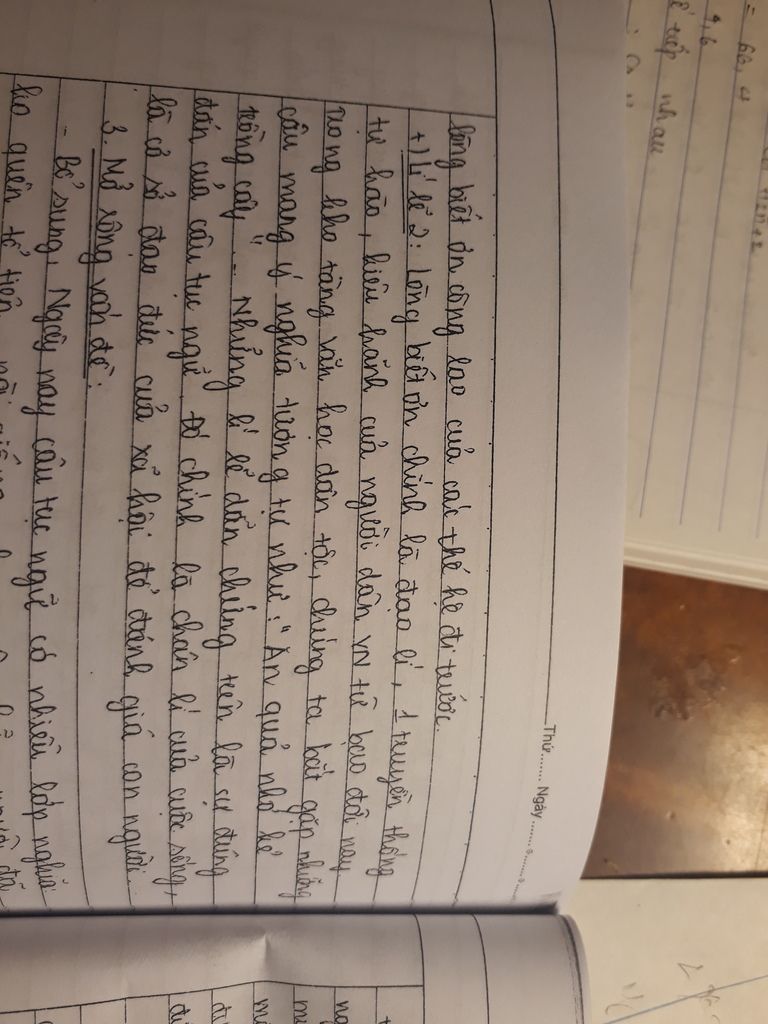 Thứ....... Ngày.......
lòng biết ơn công lao của các thế hệ đi trước.
+) Lí lẽ 2: Lòng biết ơn chính là đạo lí, 1 truyền thống
tự hào, kiêu hãnh của người dân VN từ bao đời nay
trong kho tàng văn học dân tộc, chúng ta bắt gặp những
câu mang ý nghĩa tương tự như: "Ăn quả nhớ kẻ
trồng cây"... Những lí lẽ dẫn chứng trên là sự đúng
đắn của câu tục ngữ đó chính là chân lí của cuộc sống,
là cơ sở đạo đức của xã hội để đánh giá con người...
3. Mở rộng vấn đề:
- Bổ sung, Ngày nay câu tục ngữ có nhiều lớp nghĩa
quên tổ tiên
= 66,4
9,6
tiếp nhau